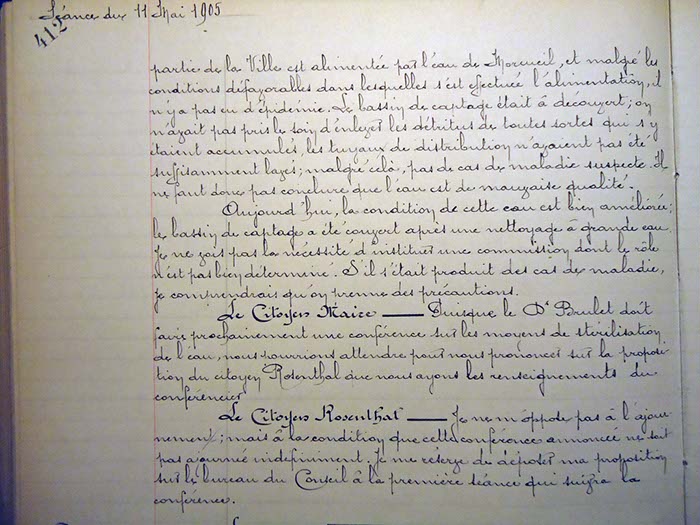 Séance du 11 Mai 1905
412
partie de la Ville est alimentée par l'eau de Morcueil, et malgré les
conditions défavorables dans lesquelles s'est effectuée l'alimentation, il
n'y a pas eu d'épidémie. Le bassin de captage était à découvert; on
n'avait pas pris le soin d'enlever les détritus de toutes sortes qui s'y
étaient accumulés, les tuyaux de distribution n'avaient pas été
suffisamment lavés; malgré celà, pas de cas de maladie suspecte. Il
ne faut donc pas conclure que l'eau est de mauvaise qualité.
Aujourd'hui, la condition de cette eau est bien améliorée;
le bassin de captage a été couvert après une nettoyage à grande eau.
Je ne vois pas la nécessité d'instituer une commission dont le rôle
n'est pas bien déterminé. S'il s'était produit des cas de maladie,
je comprendrais qu'on prenne des précautions.
Le Citoyen Maire — Puisque le Dr Brulet doit
faire prochainement une conférence sur les moyens de stérilisation
de l'eau, nous pourrions attendre pour nous prononcer sur la proposi
tion du citoyen Rosenthal que nous ayons les renseignements du
conférencier
Le Citoyen Rosenthal — Je ne m'oppose pas à l'ajour
nement; mais à la condition que cette conférence annoncée ne soit
pas ajournée indéfiniment. Je me réserve de déposer ma proposition
sur le bureau du Conseil à la première séance qui suivra la
conférence.